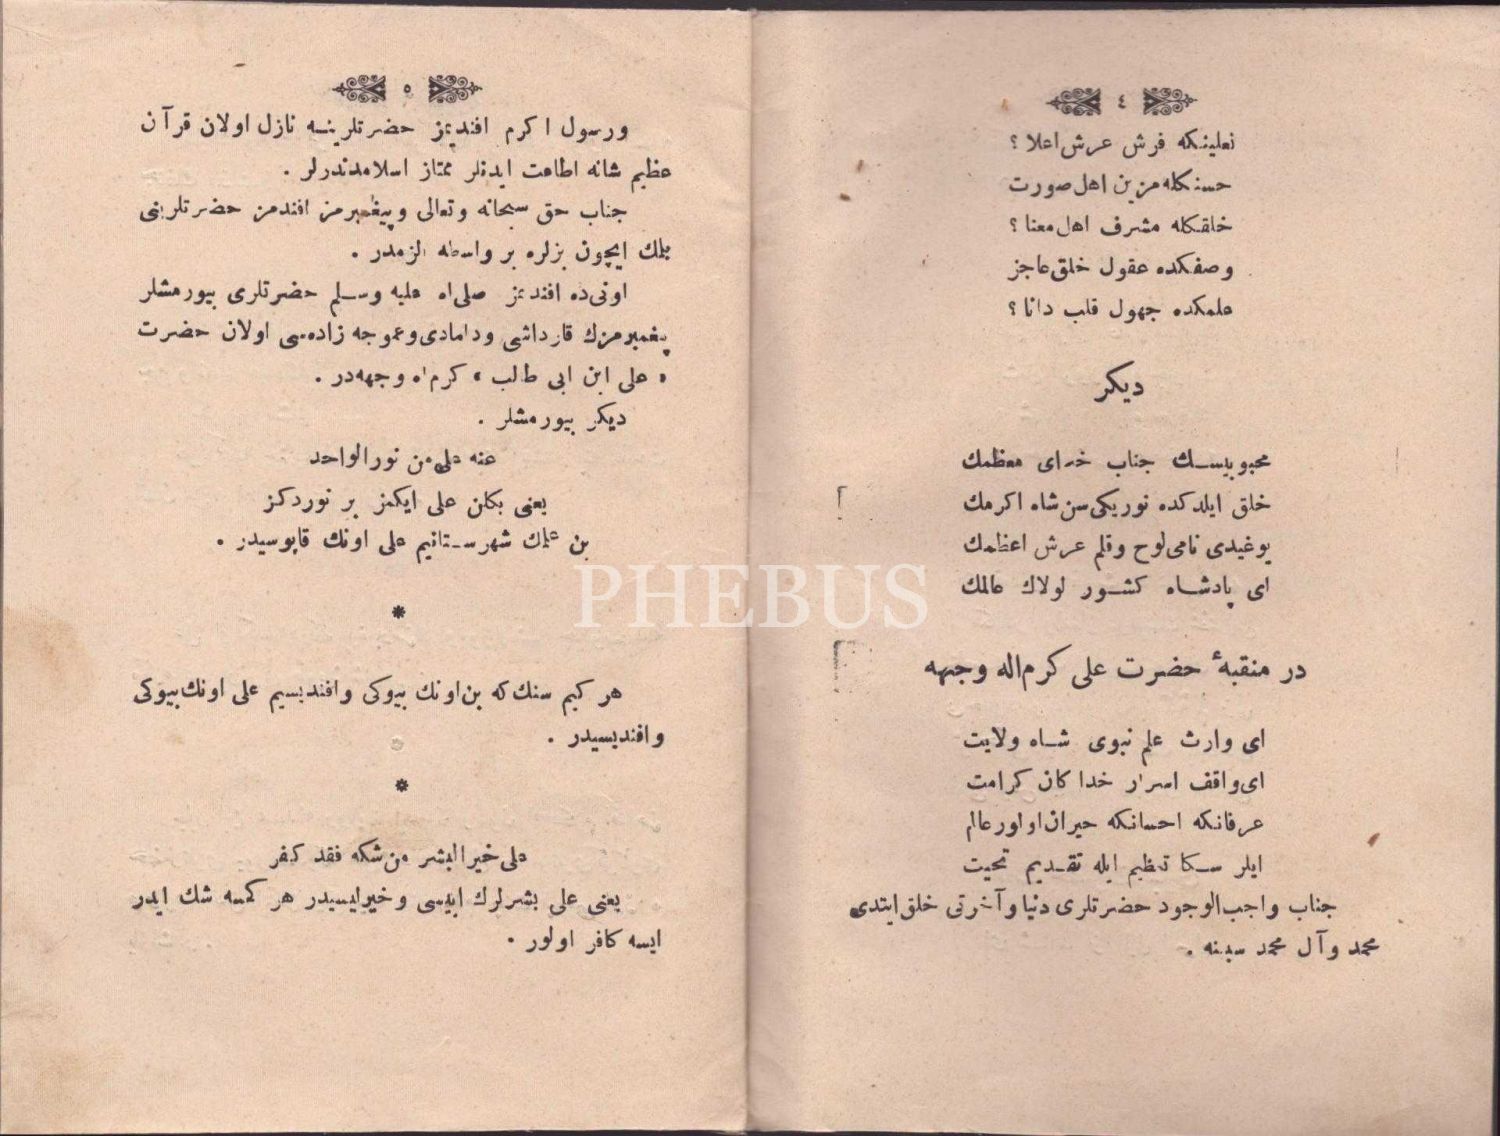 ٤
نعلینكه فرش عرش اعلا ؟
حسنكله مزین اهل صورت
خلقكله مشرف اهل معنا ؟
وصفكده عقول خلق عاجز
علمكده جهول قلب دانا ؟
دیكر
محبوبیسـك جناب خدای معظمك
خلق ایلدكده نوریكی سن شاه اكرمك
یوغیدی نامی لوح و قلم عرش اعظمك
ای پادشـاه كشـور لولاك عالمك
در منقبهٔ حضرت علی كرم اله وجهه
ای وارث علم نبوی شـاه ولایت
ای واقف اسرار خدا كان كرامت
عرفانكه احسانكه حیران اولور عالم
ایلر سـكا تعظیم ایله تقـدیم تحیت
جناب واجب الوجود حضرتلری دنیا و آخرتی خلق ایتدی
محمد و آل محمد سببنه .
٥
و رسول اكرم افندیمز حضرتلرینـه نازل اولان قرآن
عظیم شانه اطاعت ایدنلر ممتاز اسلامدندرلر .
جناب حق سبحانه و تعالی و پیغمبرمز افندمز حضرتلرینی
بلمك ایچون بزلره بر واسطه الزمدر .
اونی ده افندمز صلی اه علیه وسـلم حضرتلری بیورمشلر
پغمبرمزك قارداشی و دامادی و عموجه زاده‌سی اولان حضرت
« علی ابن ابی طالب » كرم اه وجهه در .
دیكر بیورمشلر .
عنه علی من نور الواحد
یعنی بكلن علی ایكمز بر نوردكز
بن علمك شهرسـتانیم علی اونك قاپوسیدر .
*
هر كیم سنك كه بن اونك بیوكی و افندیسیم علی اونك بیوكی
و افندیسیدر .
*
علی خیر البشر من شكه فقد كفر
یعنی علی بشرلرك اییسی و خیرلیسیدر هر كمسه شك ایدر
ایسه كافر اولور .
PHEBUS